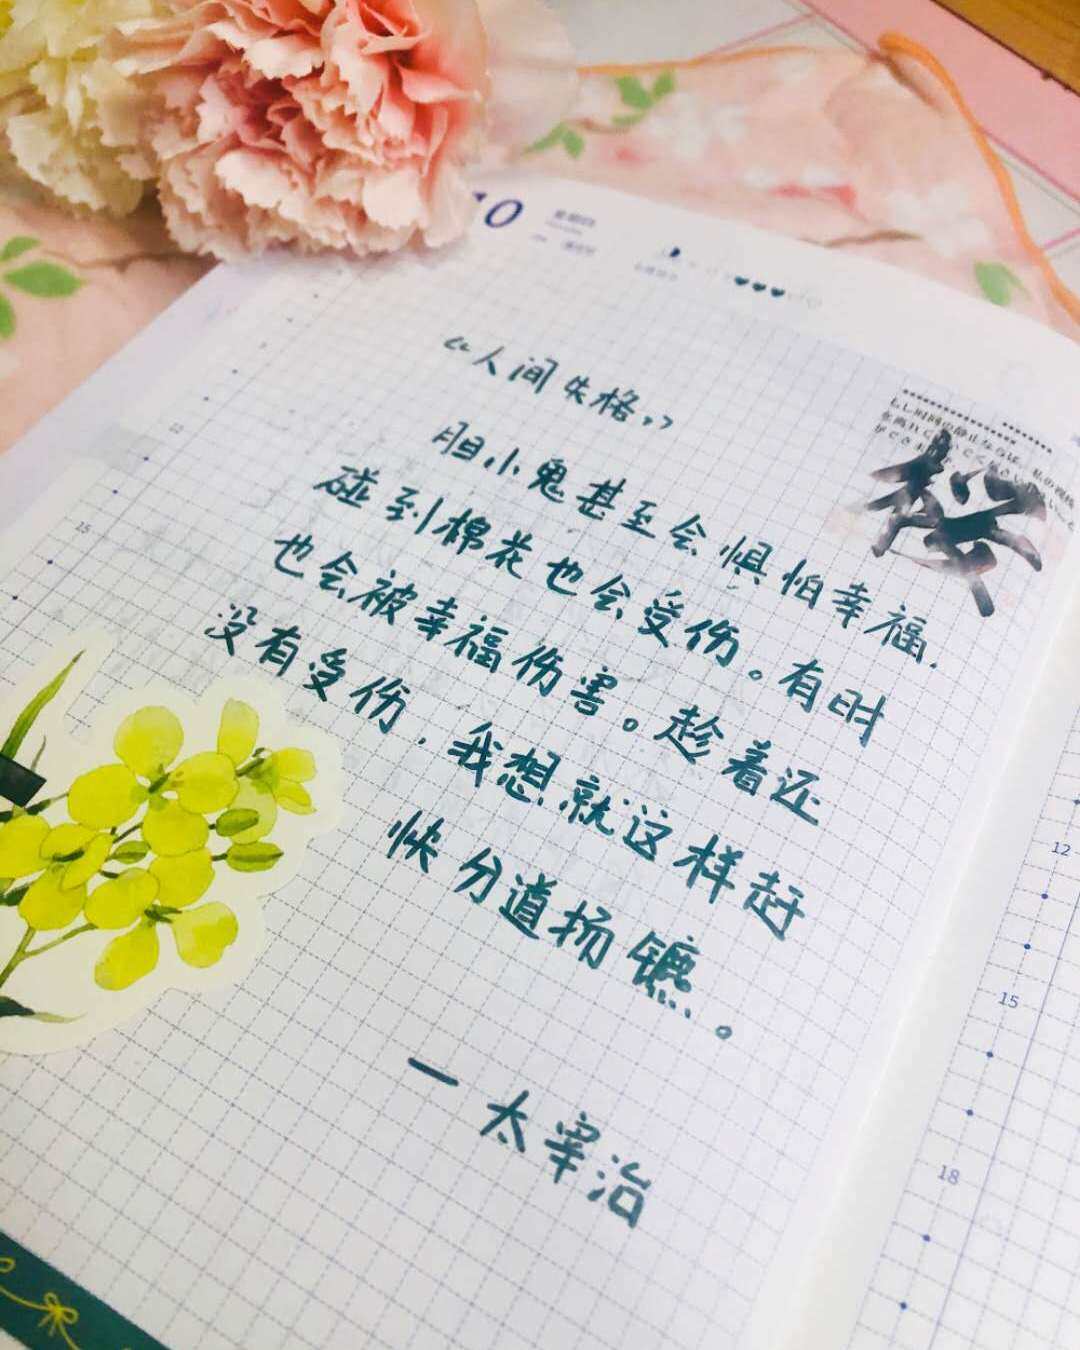 10
《人间失格》
胆小鬼甚至会惧怕幸福.
碰到棉花也会受伤。有时
也会被幸福伤害。趁着还
没有受伤,我想就这样赶
快分道扬镳。
一太宰治
桜
12
15
12
15
18